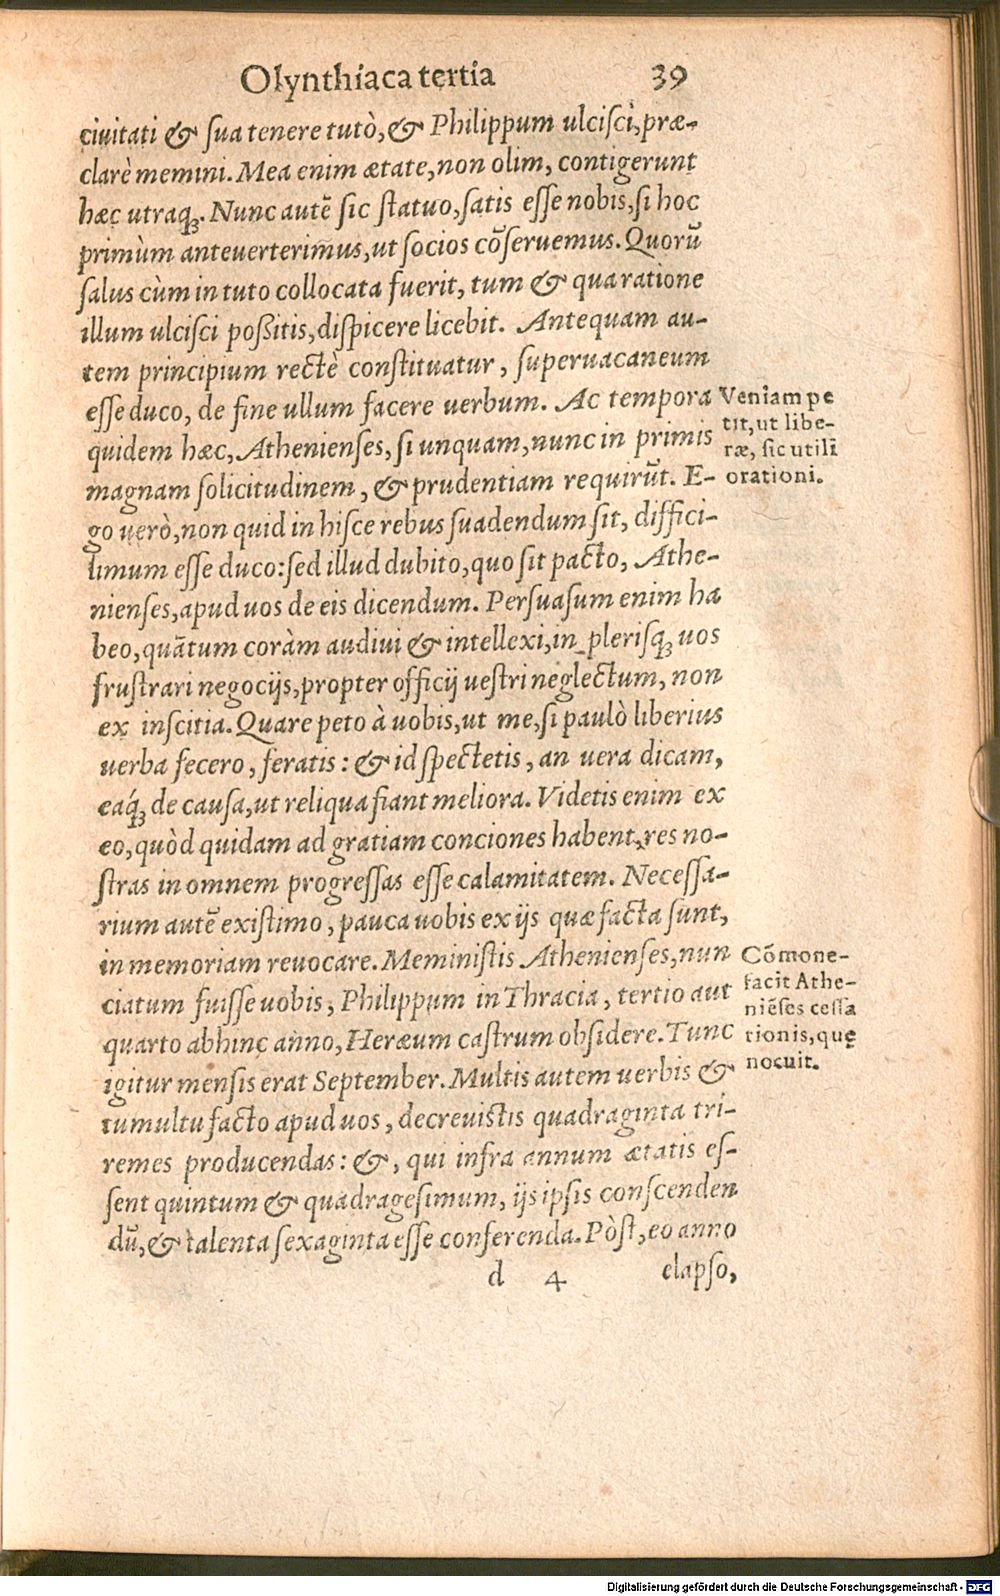 Olynthiaca tertia 39
ciuitati & sua tenere tutò, & Philippum ulcisci, præ-
clarè memini. Mea enim ætate, non olim, contigerunt
hæc utraq;. Nunc autē sic statuo, satis esse nobis, si hoc
primùm anteuerterimus, ut socios cōseruemus. Quorū
salus cùm in tuto collocata fuerit, tum & qua ratione
illum ulcisci poßitis, dispicere licebit. Antequam au-
tem principium rectè constituatur, superuacaneum
esse duco, de fine ullum facere uerbum. Ac tempora
quidem hæc, Athenienses, si unquam, nunc in primis
magnam solicitudinem, & prudentiam requirūt. E-
go uerò, non quid in hisce rebus suadendum sit, diffici-
limum esse duco: sed illud dubito, quo sit pacto, Athe-
nienses, apud uos de eis dicendum. Persuasum enim ha
beo, quātum coràm audiui & intellexi, in plerisq; uos
frustrari negocijs, propter officij uestri neglectum, non
ex inscitia. Quare peto à uobis, ut me, si paulò liberius
uerba fecero, feratis: & id spectetis, an uera dicam,
eaq́; de causa, ut reliqua fiant meliora. Videtis enim ex
eo, quòd quidam ad gratiam conciones habent, res no-
stras in omnem progressas esse calamitatem. Necessa-
rium autē existimo, pauca uobis ex ijs quæ facta sunt,
in memoriam reuocare. Meministis Athenienses, nun
ciatum fuisse uobis, Philippum in Thracia, tertio aut
quarto abhinc anno, Heræum castrum obsidere. Tunc
igitur mensis erat September. Multis autem uerbis &
tumultu facto apud uos, decreuistis quadraginta tri-
remes producendas: &, qui infra annum ætatis es-
sent quintum & quadragesimum, ijs ipsis conscenden
dū, & talenta sexaginta esse conferenda. Pòst, eo anno
d 4 elapso,
Veniam pe
tit, ut libe-
ræ, sic utili
orationi.
Cōmone-
facit Athe-
niēses cessa
tionis, quę
nocuit.
Digitalisierung gefördert durch die Deutsche Forschungsgemeinschaft - DFG